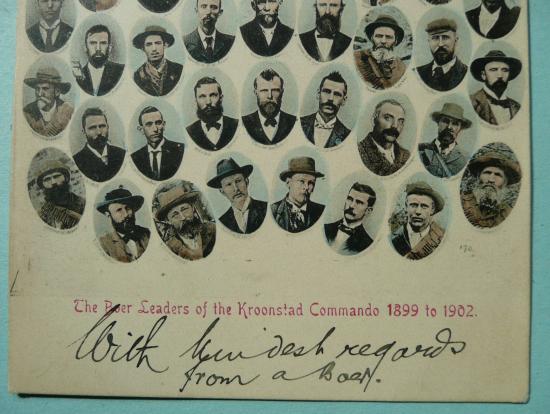 The Boer Leaders of the Kroonstad Commando 1899 to 1902.
With kindest regards
from a Boer.